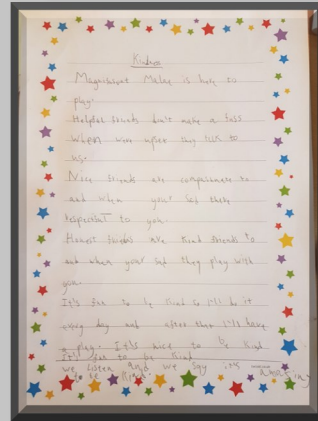 Kindness
Magnificent Maley is here to
play.
Helpful friends don't make a fuss
When were upset they talk to
us.
Nice friends are compassionate to
and when your sad there
respectful to you.
Honest friends are kind friends to
and when your sad they play with
you.
It's fun to be kind so I'll do it
every day and after then I'll have
a play. It's nice to be kind.
it's fun to be kind
we listen and we say it's amazing
to be kind.